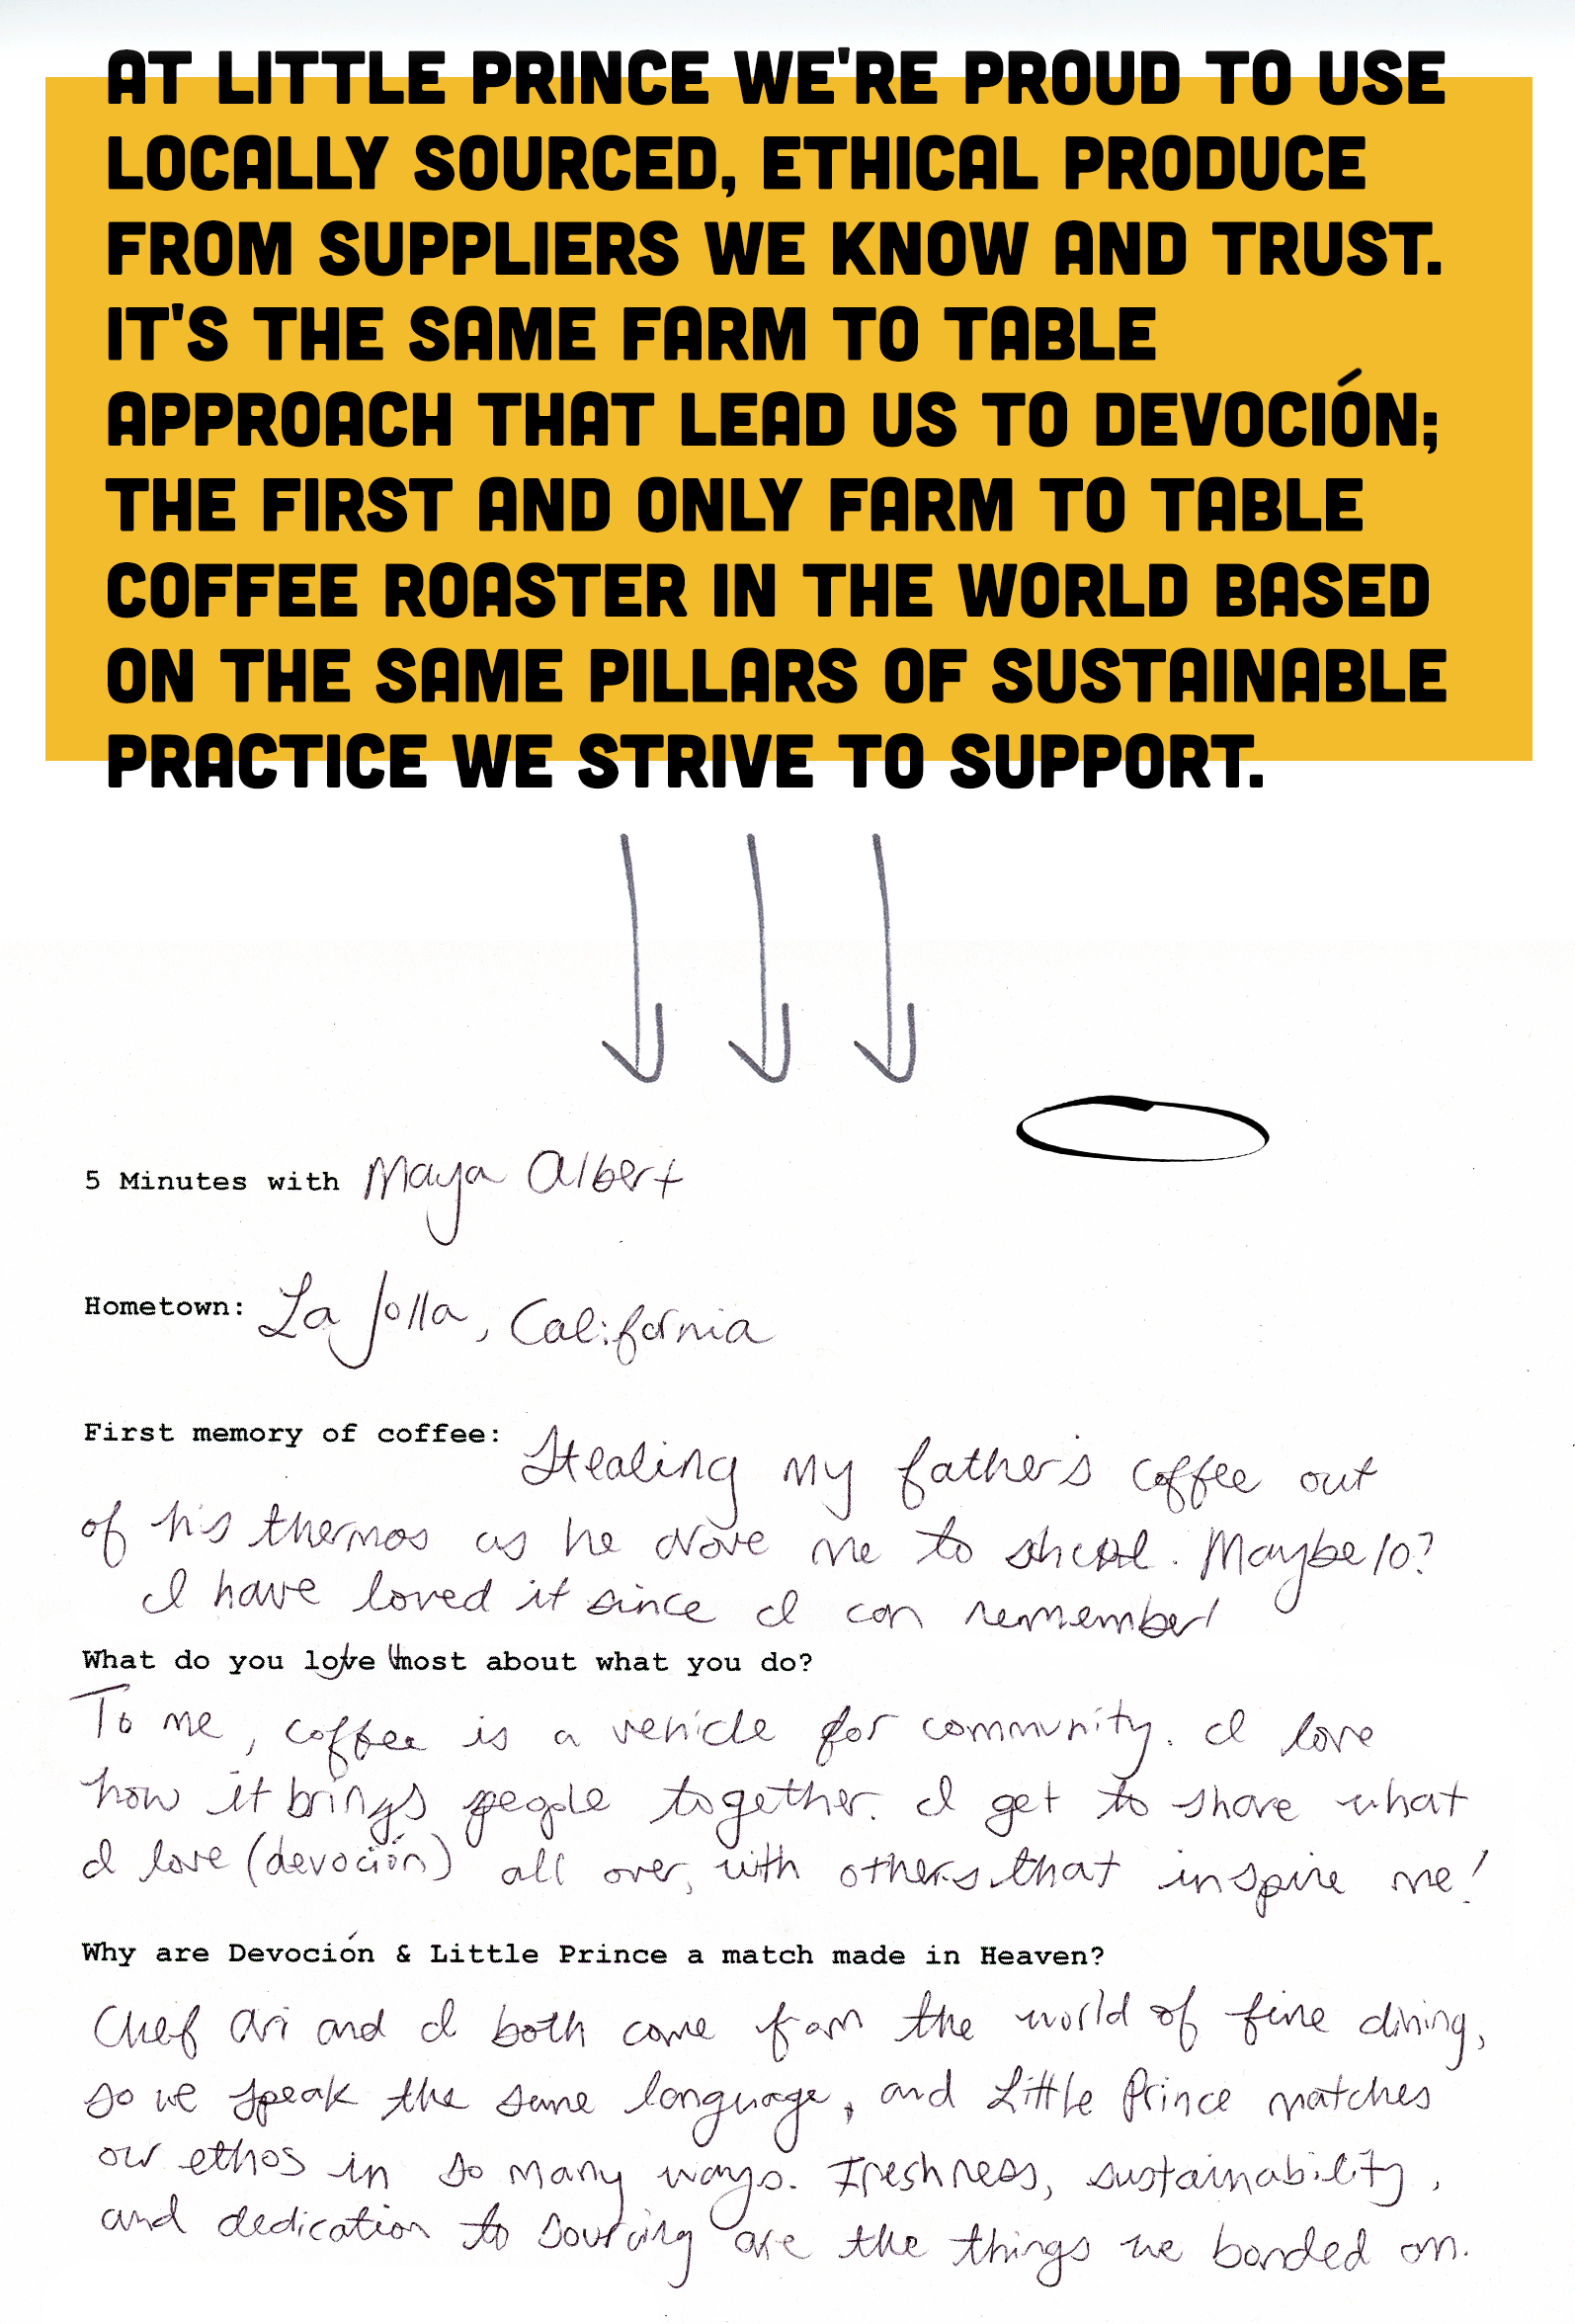 AT LITTLE PRINCE WE'RE PROUD TO USE
LOCALLY SOURCED, ETHICAL PRODUCE
FROM SUPPLIERS WE KNOW AND TRUST.
IT'S THE SAME FARM TO TABLE
APPROACH THAT LEAD US TO DEVOCIÓN;
THE FIRST AND ONLY FARM TO TABLE
COFFEE ROASTER IN THE WORLD BASED
ON THE SAME PILLARS OF SUSTAINABLE
PRACTICE WE STRIVE TO SUPPORT.
5 Minutes with Maya Albert
Hometown: La Jolla, California
First memory of coffee: Stealing my father's coffee out
of his thermos as he drove me to school. Maybe 10?
I have loved it since I can remember!
What do you love most about what you do?
To me, coffee is a vehicle for community. I love
how it brings people together. I get to share what
I love (devoción) all over, with others that inspire me!
Why are Devoción & Little Prince a match made in Heaven?
Chef Ari and I both come from the world of fine dining,
so we speak the same language, and Little Prince matches
our ethos in so many ways. Freshness, sustainability,
and dedication to sourcing are the things we bonded on.